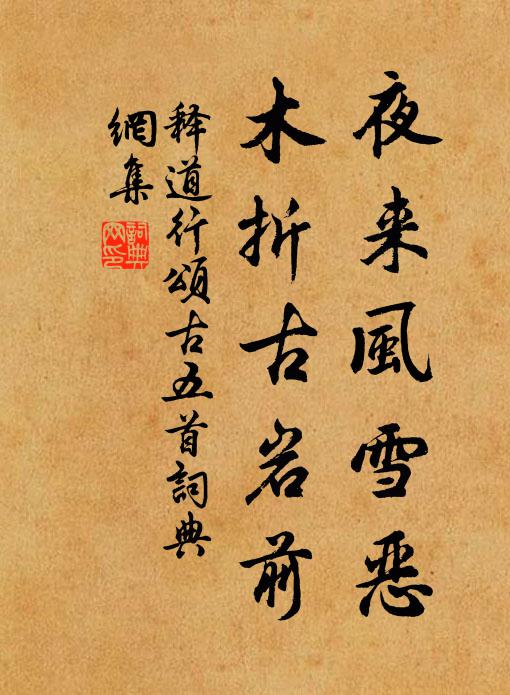 夜来風雪恶
木折古岩前
释道行頌古五首詞典
網集
詞典
网印